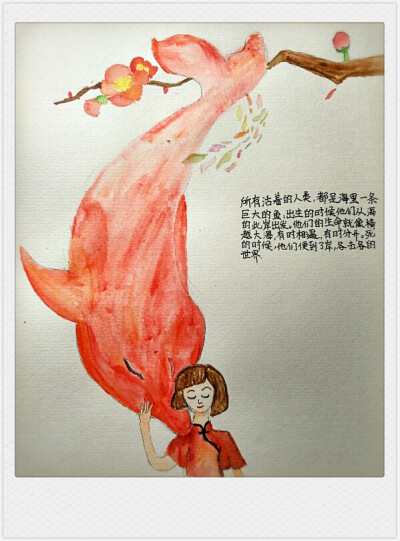 所有活着的人类，都是海里一条
巨大的鱼，出生的时候他们从海
的此岸出发。他们的生命就像横
越大海，有时相遇，有时分开。死
的时候，他们便到了岸，各去各的
世界